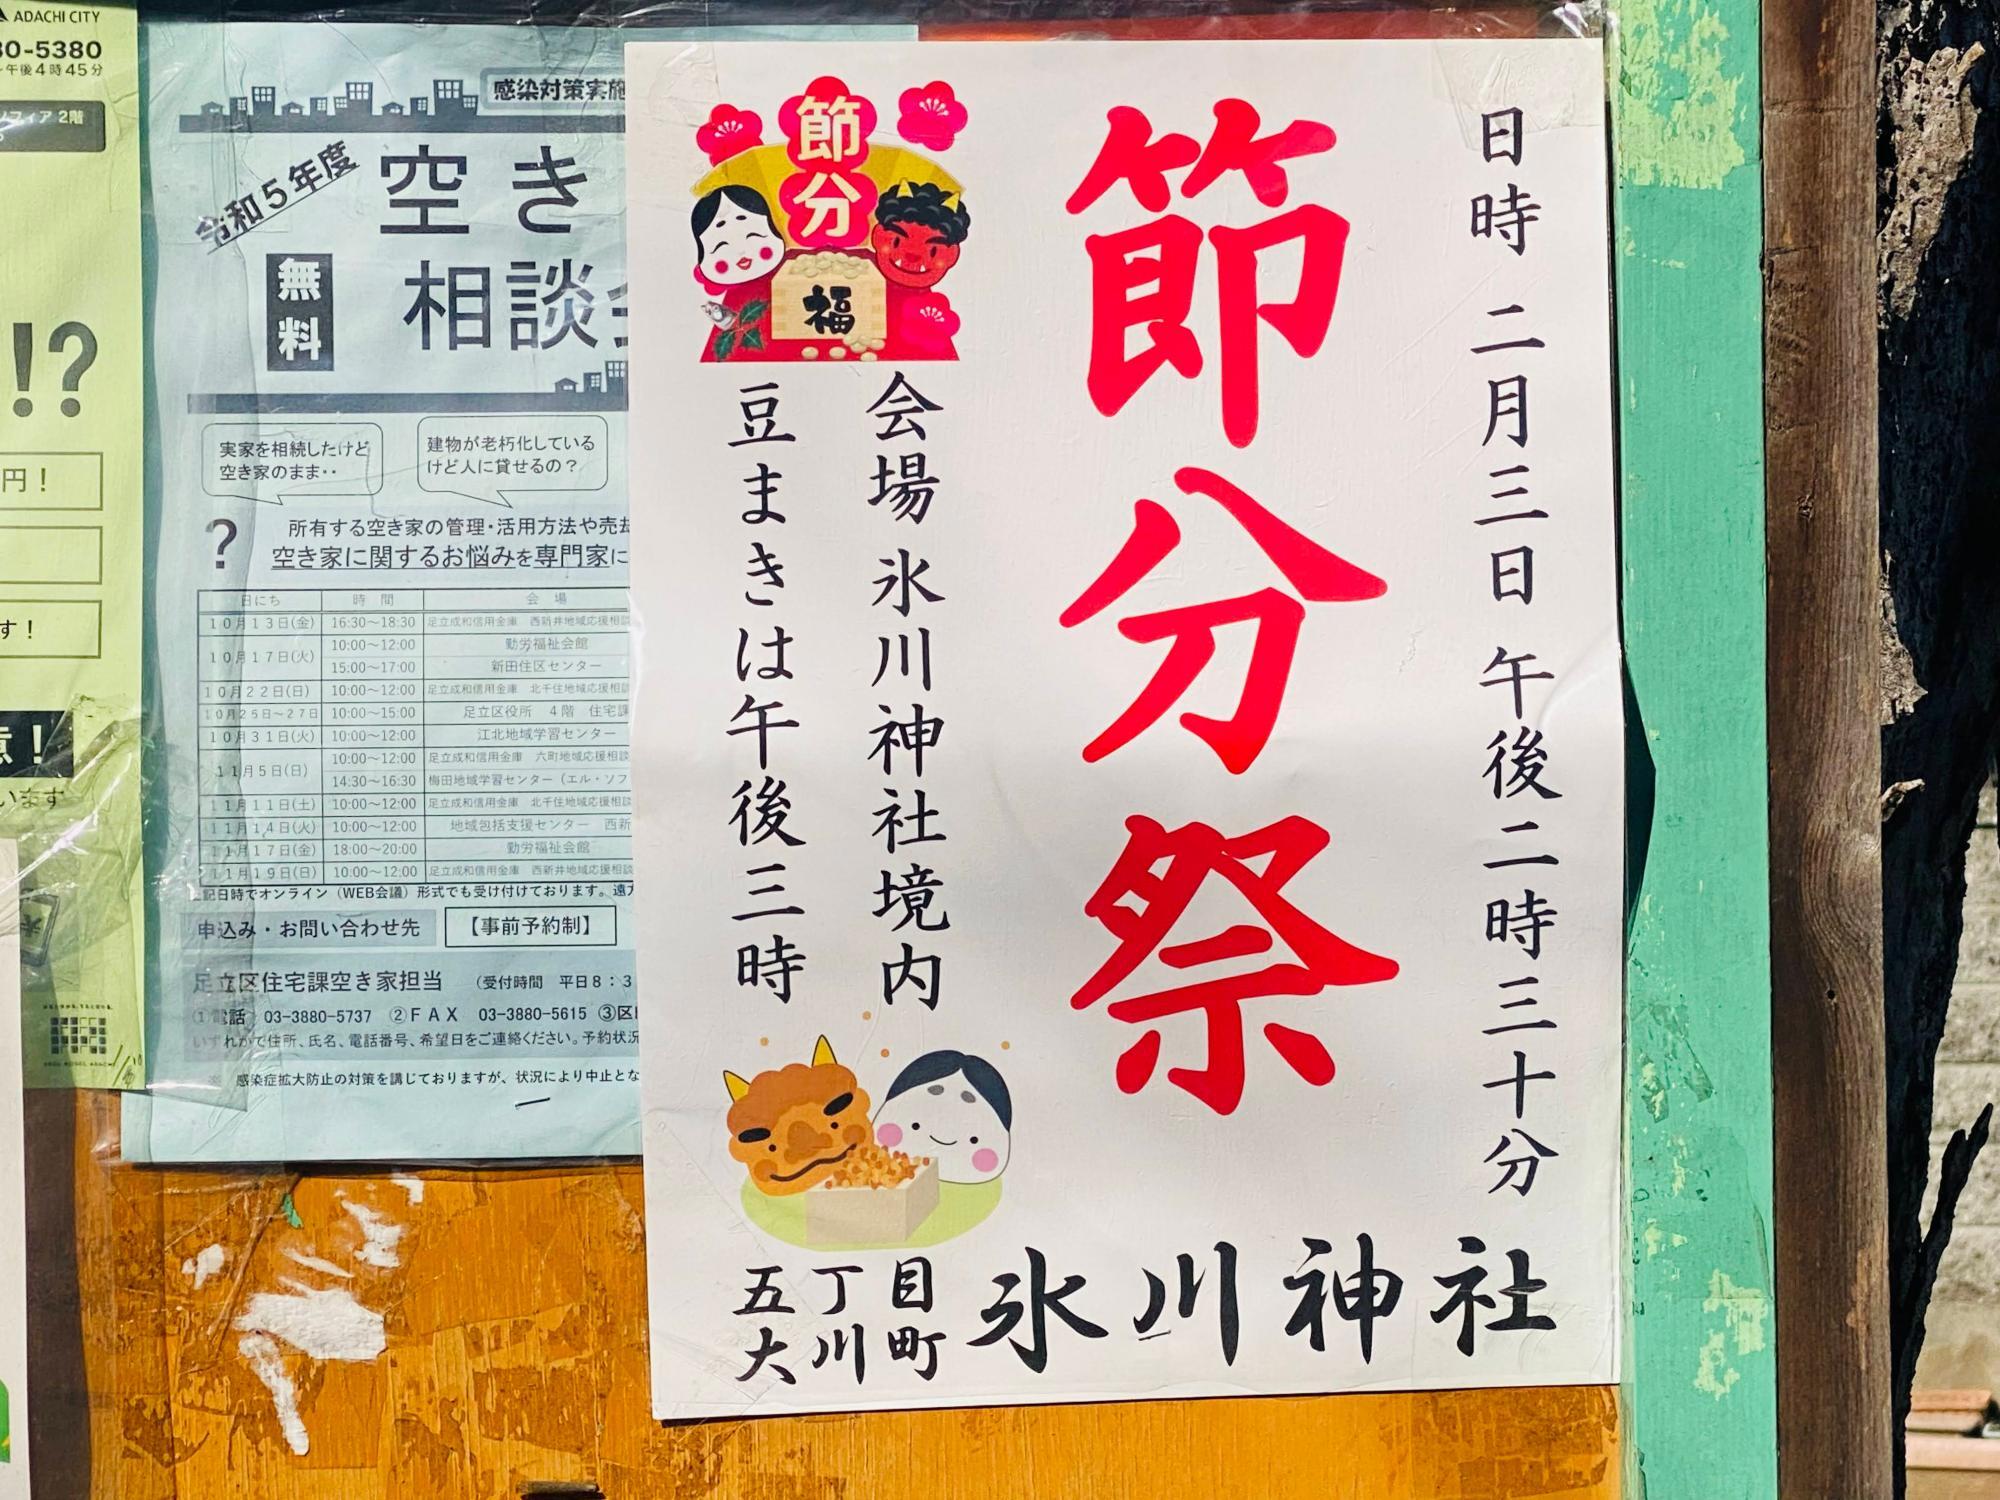 ADACHI CITY
80-5380
午後4時45分
ソフィア 2階
!?
円！
す！
意！
います
感染対策実施
令和5年度
空き
無料
相談会
実家を相続したけど
空き家のまま‥
建物が老朽化している
けど人に貸せるの？
?
所有する空き家の管理・活用方法や売却
空き家に関するお悩みを専門家に
日にち 時　間 会　場
10月13日(金) 16:30～18:30 足立成和信用金庫　西新井地域応援相談
10月17日(火) 10:00～12:00 勤労福祉会館
15:00～17:00 新田住区センター
10月22日(日) 10:00～12:00 足立成和信用金庫　北千住地域応援相談
10月25日～27日 10:00～15:00 足立区役所　4階　住宅課
10月31日(火) 10:00～12:00 江北地域学習センター
11月5日(日) 10:00～12:00 足立成和信用金庫　六町地域応援相談
14:30～16:30 梅田地域学習センター（エル・ソフ
11月11日(土) 10:00～12:00 足立成和信用金庫　北千住地域応援相談
11月14日(火) 10:00～12:00 地域包括支援センター　西新
11月17日(金) 18:00～20:00 勤労福祉会館
11月19日(日) 10:00～12:00 足立成和信用金庫　西新井地域応援相談
記日時でオンライン（WEB会議）形式でも受け付けております。遠方
申込み・お問い合わせ先 【事前予約制】
足立区住宅課空き家担当 （受付時間　平日8：3
①電話　03-3880-5737　②FAX　03-3880-5615　③区
いずれかで住所、氏名、電話番号、希望日をご連絡ください。予約状況
※　感染症拡大防止の対策を講じておりますが、状況により中止とな
日時　二月三日　午後二時三十分
節分祭
節分
福
会場　氷川神社境内
豆まきは午後三時
五丁目
大川町
氷川神社